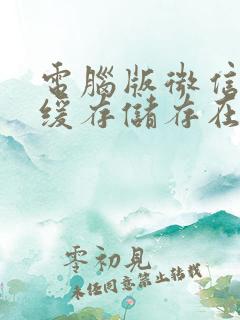 電腦版微信
緩存儲存在
零初見
未经同意禁止转载